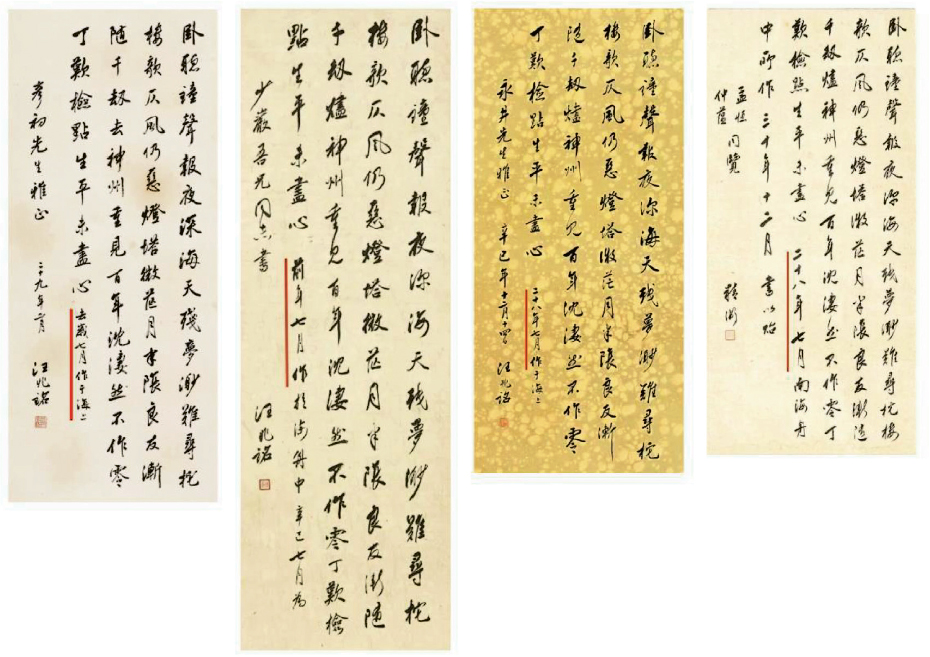 卧聽鐘聲報夜深海天殘夢渺難尋柁
樓欹仄風仍惡燈塔微茫月半陰良友漸
隨千劫去神州重見百年沈淒然不作零
丁歎檢點生平未盡心 去歲七月作于海上
彥初先生雅正 二十九年 汪兆銘
卧聽鐘聲報夜深海天殘夢渺難尋柁
樓欹仄風仍惡燈塔微茫月半陰良友漸隨
千劫燼神州重見百年沈淒然不作零丁歎檢
點生平未盡心 前年七月作於海舟中 辛巳七月為
少巖吾兄同志書 汪兆銘
卧聽鐘聲報夜深海天殘夢渺難尋柁
樓欹仄風仍惡燈塔微茫月半陰良友漸
隨千劫燼神州重見百年沈淒然不作零
丁歎檢點生平未盡心 二十八年七月作于海上
永井先生雅正 辛巳年 汪兆銘
卧聽鐘聲報夜深海天殘夢渺難尋柁樓
欹仄風仍惡燈塔微茫月半陰良友漸隨
千劫燼神州重見百年沈淒然不作零丁
歎檢點生平未盡心 二十八年七月南海舟
中所作三十年十二月 書以貽
孟恆
仲蘊 同覽
精衛